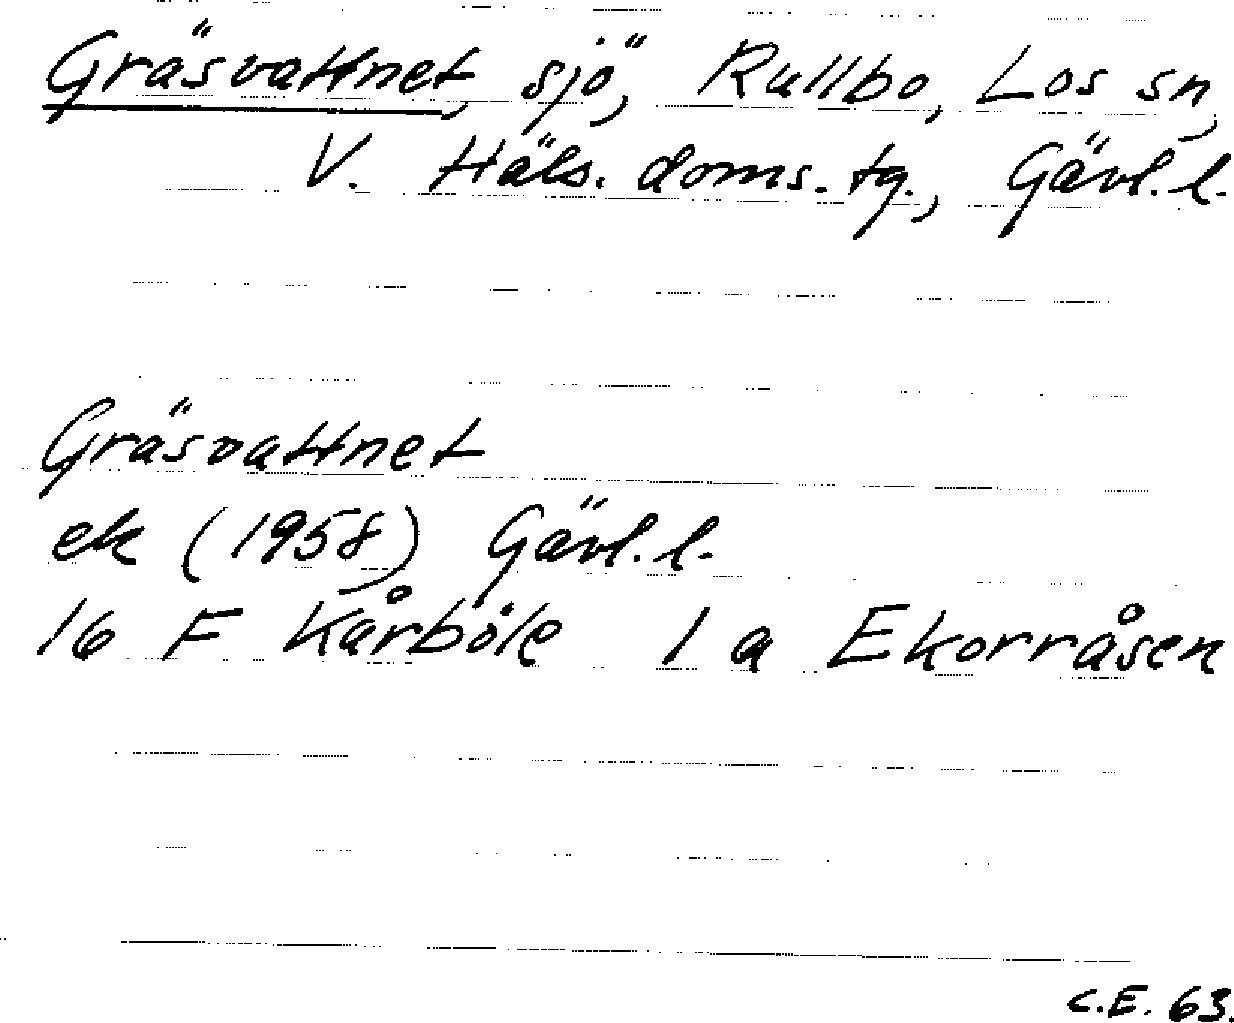 Gräsvattnet, sjö, Rullbo, Los sn,
V. Häls. doms. tg., Gävl. l.
Gräsvattnet
ek (1958) Gävl. l.
16 F Kårböle 1 a Ekorråsen
C.E. 63.